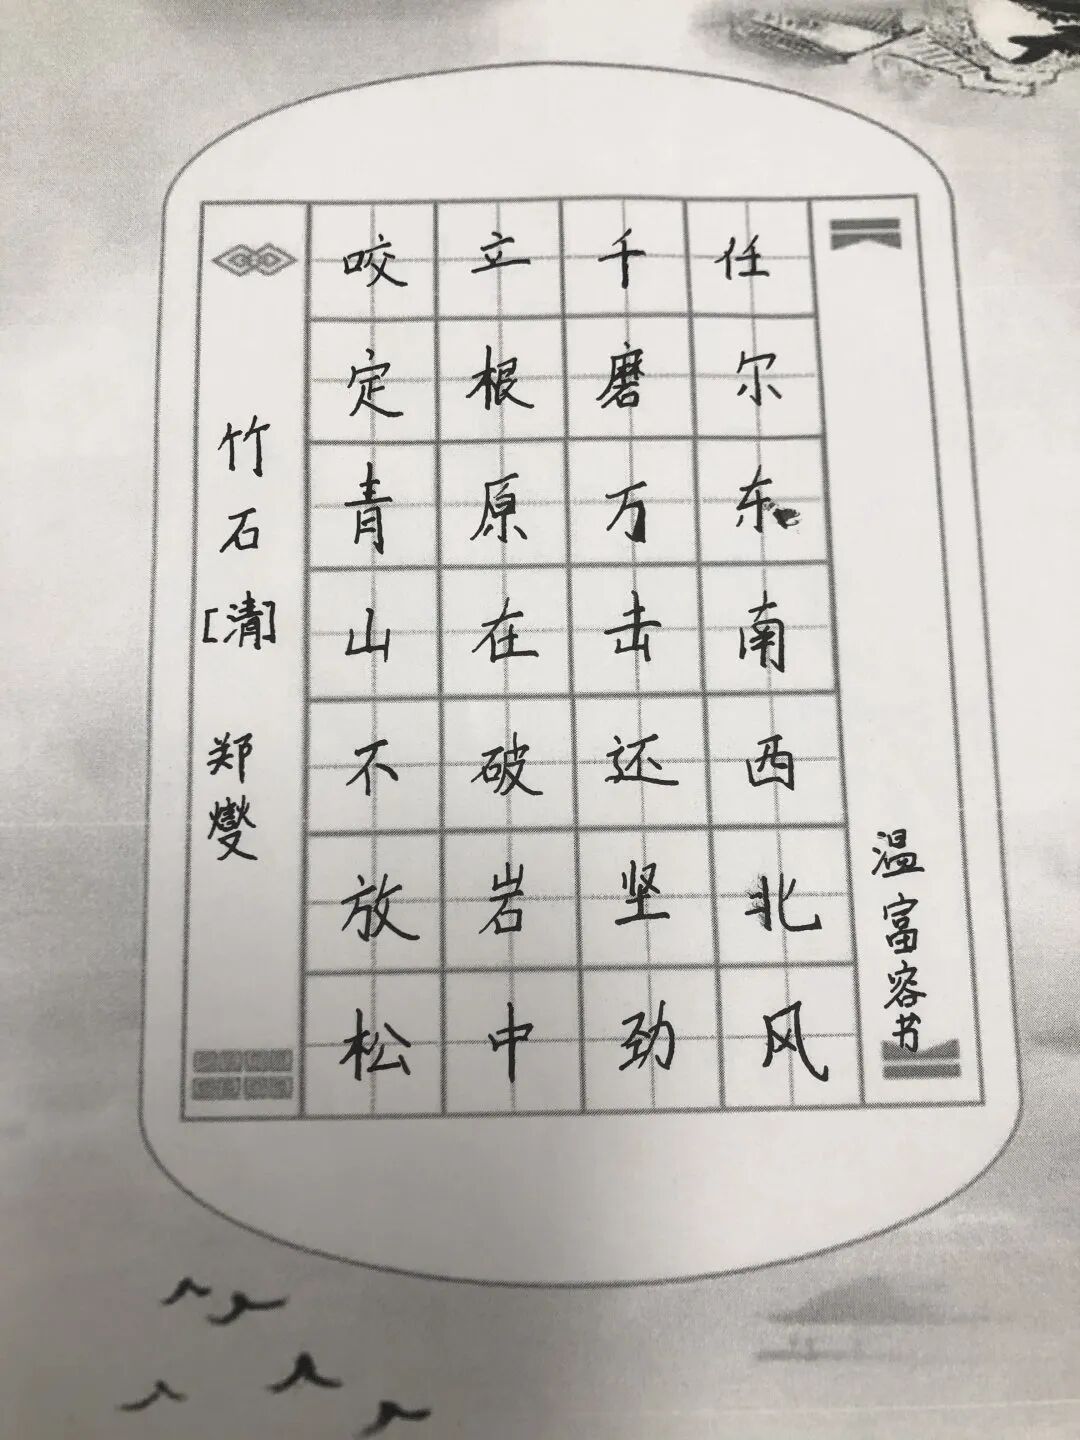 竹石[清] 郑燮
咬定青山不放松
立根原在破岩中
千磨万击还坚劲
任尔东南西北风
温富容书